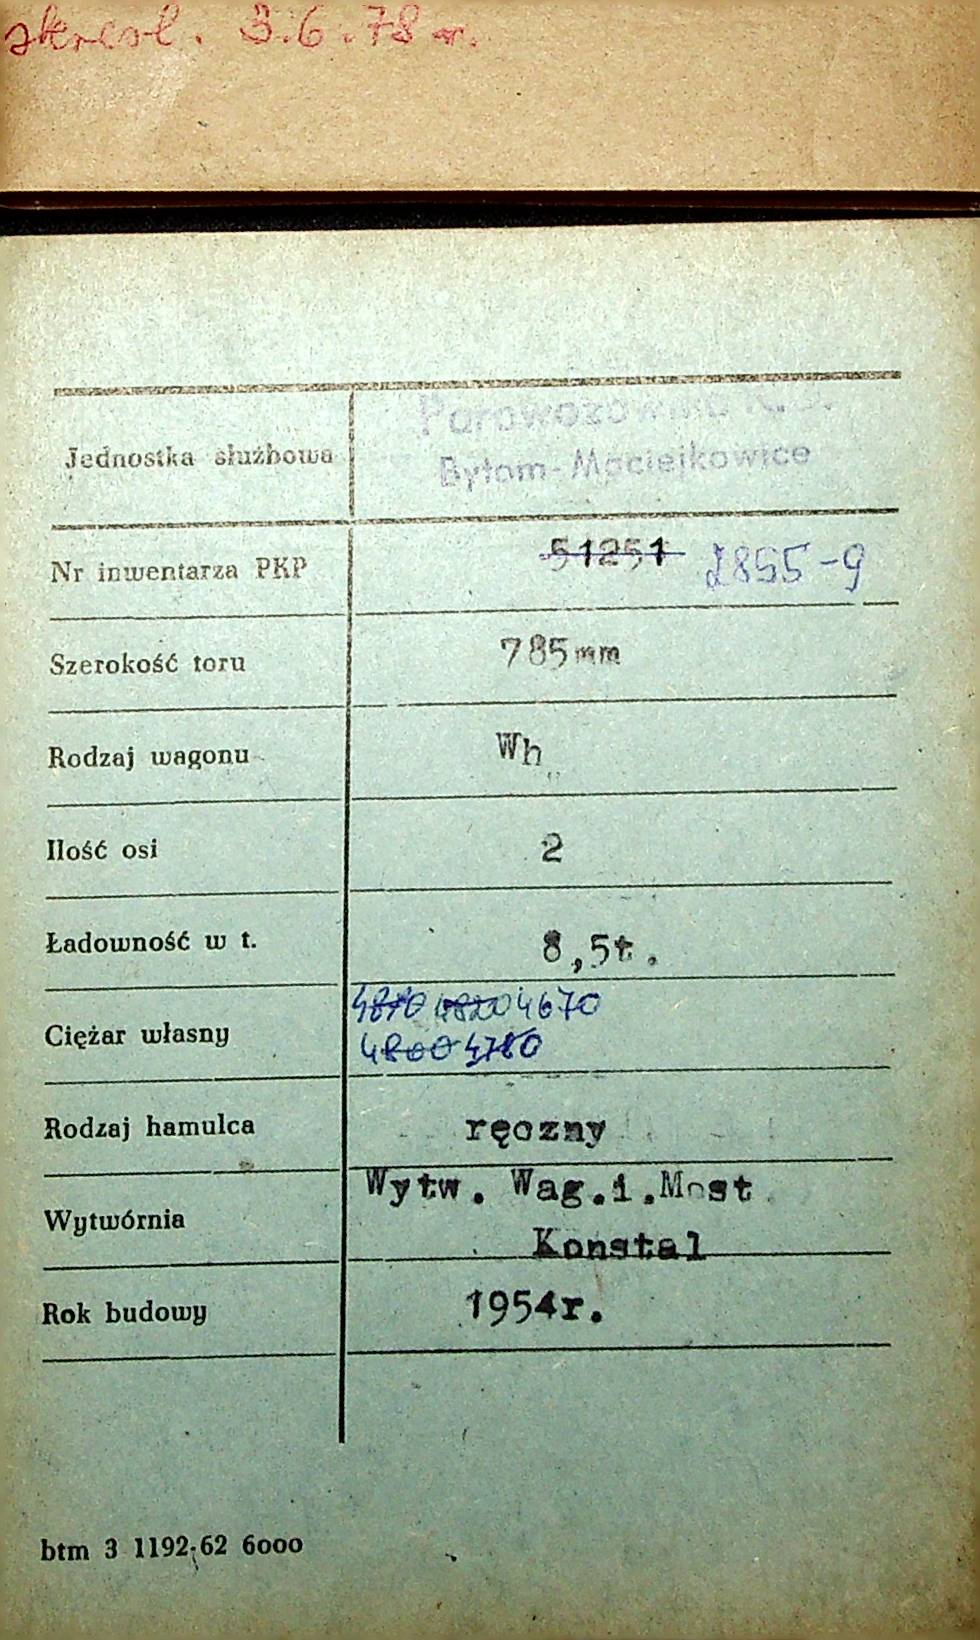 skreśl. 3.6.78 r.
Jednostka służbowa
Parowozownia K.D.
Bytom-Maciejkowice
Nr inwentarza PKP 51251 2855-9
Szerokość toru 785mm
Rodzaj wagonu Wh
Ilość osi 2
Ładowność w t. 8,5t.
Ciężar własny 4810 4820 4670
4800 4780
Rodzaj hamulca ręczny
Wytwórnia Wytw. Wag.i.Most
Konstal
Rok budowy 1954r.
btm 3 1192-62 6000